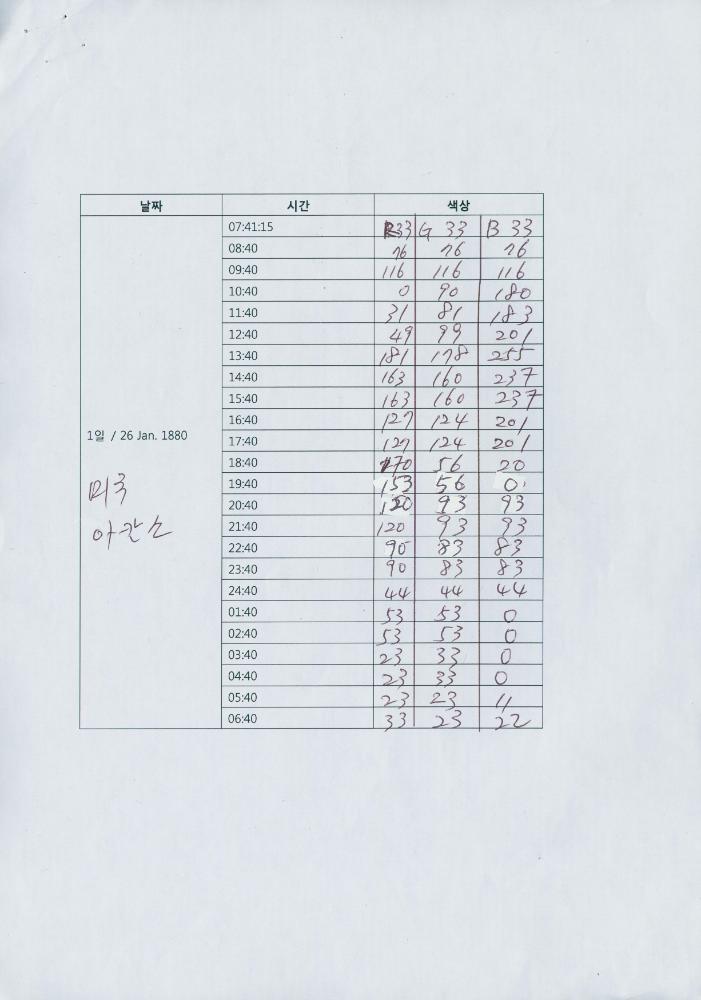 날짜 시간 색상
07:41:15 R 33 G 33 B 33
08:40 76 76 76
09:40 116 116 116
10:40 0 90 180
11:40 31 81 183
12:40 49 99 201
13:40 181 178 255
14:40 163 160 237
15:40 163 160 237
16:40 127 124 201
1일 / 26 Jan. 1880
17:40 127 124 201
18:40 170 56 20
미국
19:40 153 56 0
20:40 120 93 93
아칸소
21:40 120 93 93
22:40 90 83 83
23:40 90 83 83
24:40 44 44 44
01:40 53 53 0
02:40 53 53 0
03:40 23 33 0
04:40 23 33 0
05:40 23 23 11
06:40 33 23 22